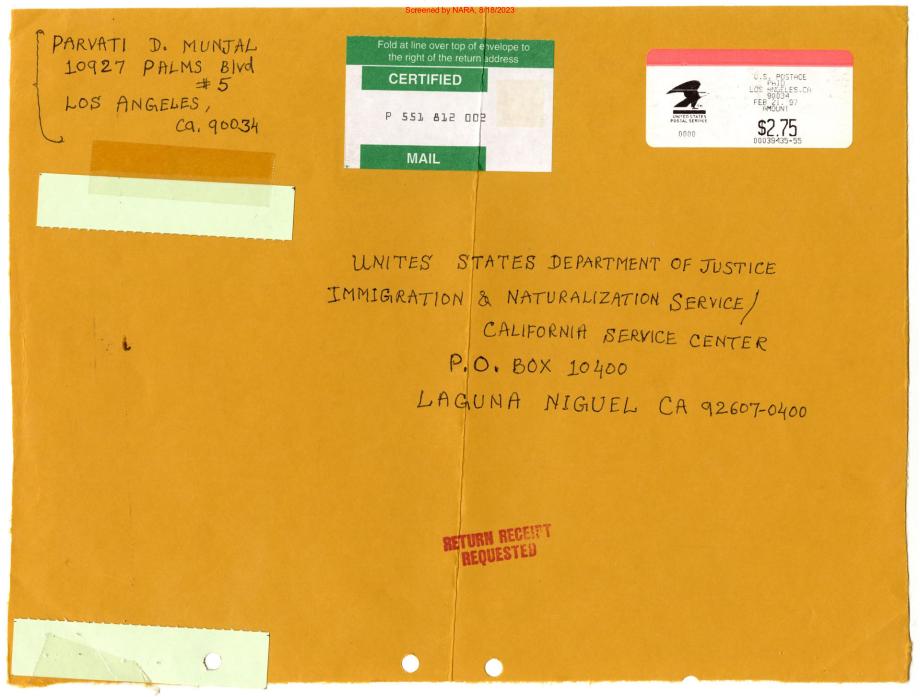 Screened by NARA, 8/18/2023
PARVATI D. MUNJAL
10927 PALMS Blvd
# 5
LOS ANGELES,
Ca. 90034
Fold at line over top of envelope to
the right of the return address
CERTIFIED
P 551 812 002
MAIL
UNITED STATES
POSTAL SERVICE
0000
U.S. POSTAGE
PAID
LOS ANGELES,CA
90034
FEB 21, 97
AMOUNT
$2.75
00039435-55
UNITES STATES DEPARTMENT OF JUSTICE
IMMIGRATION & NATURALIZATION SERVICE/
CALIFORNIA SERVICE CENTER
P.O. BOX 10400
LAGUNA NIGUEL CA 92607-0400
RETURN RECEIPT
REQUESTED